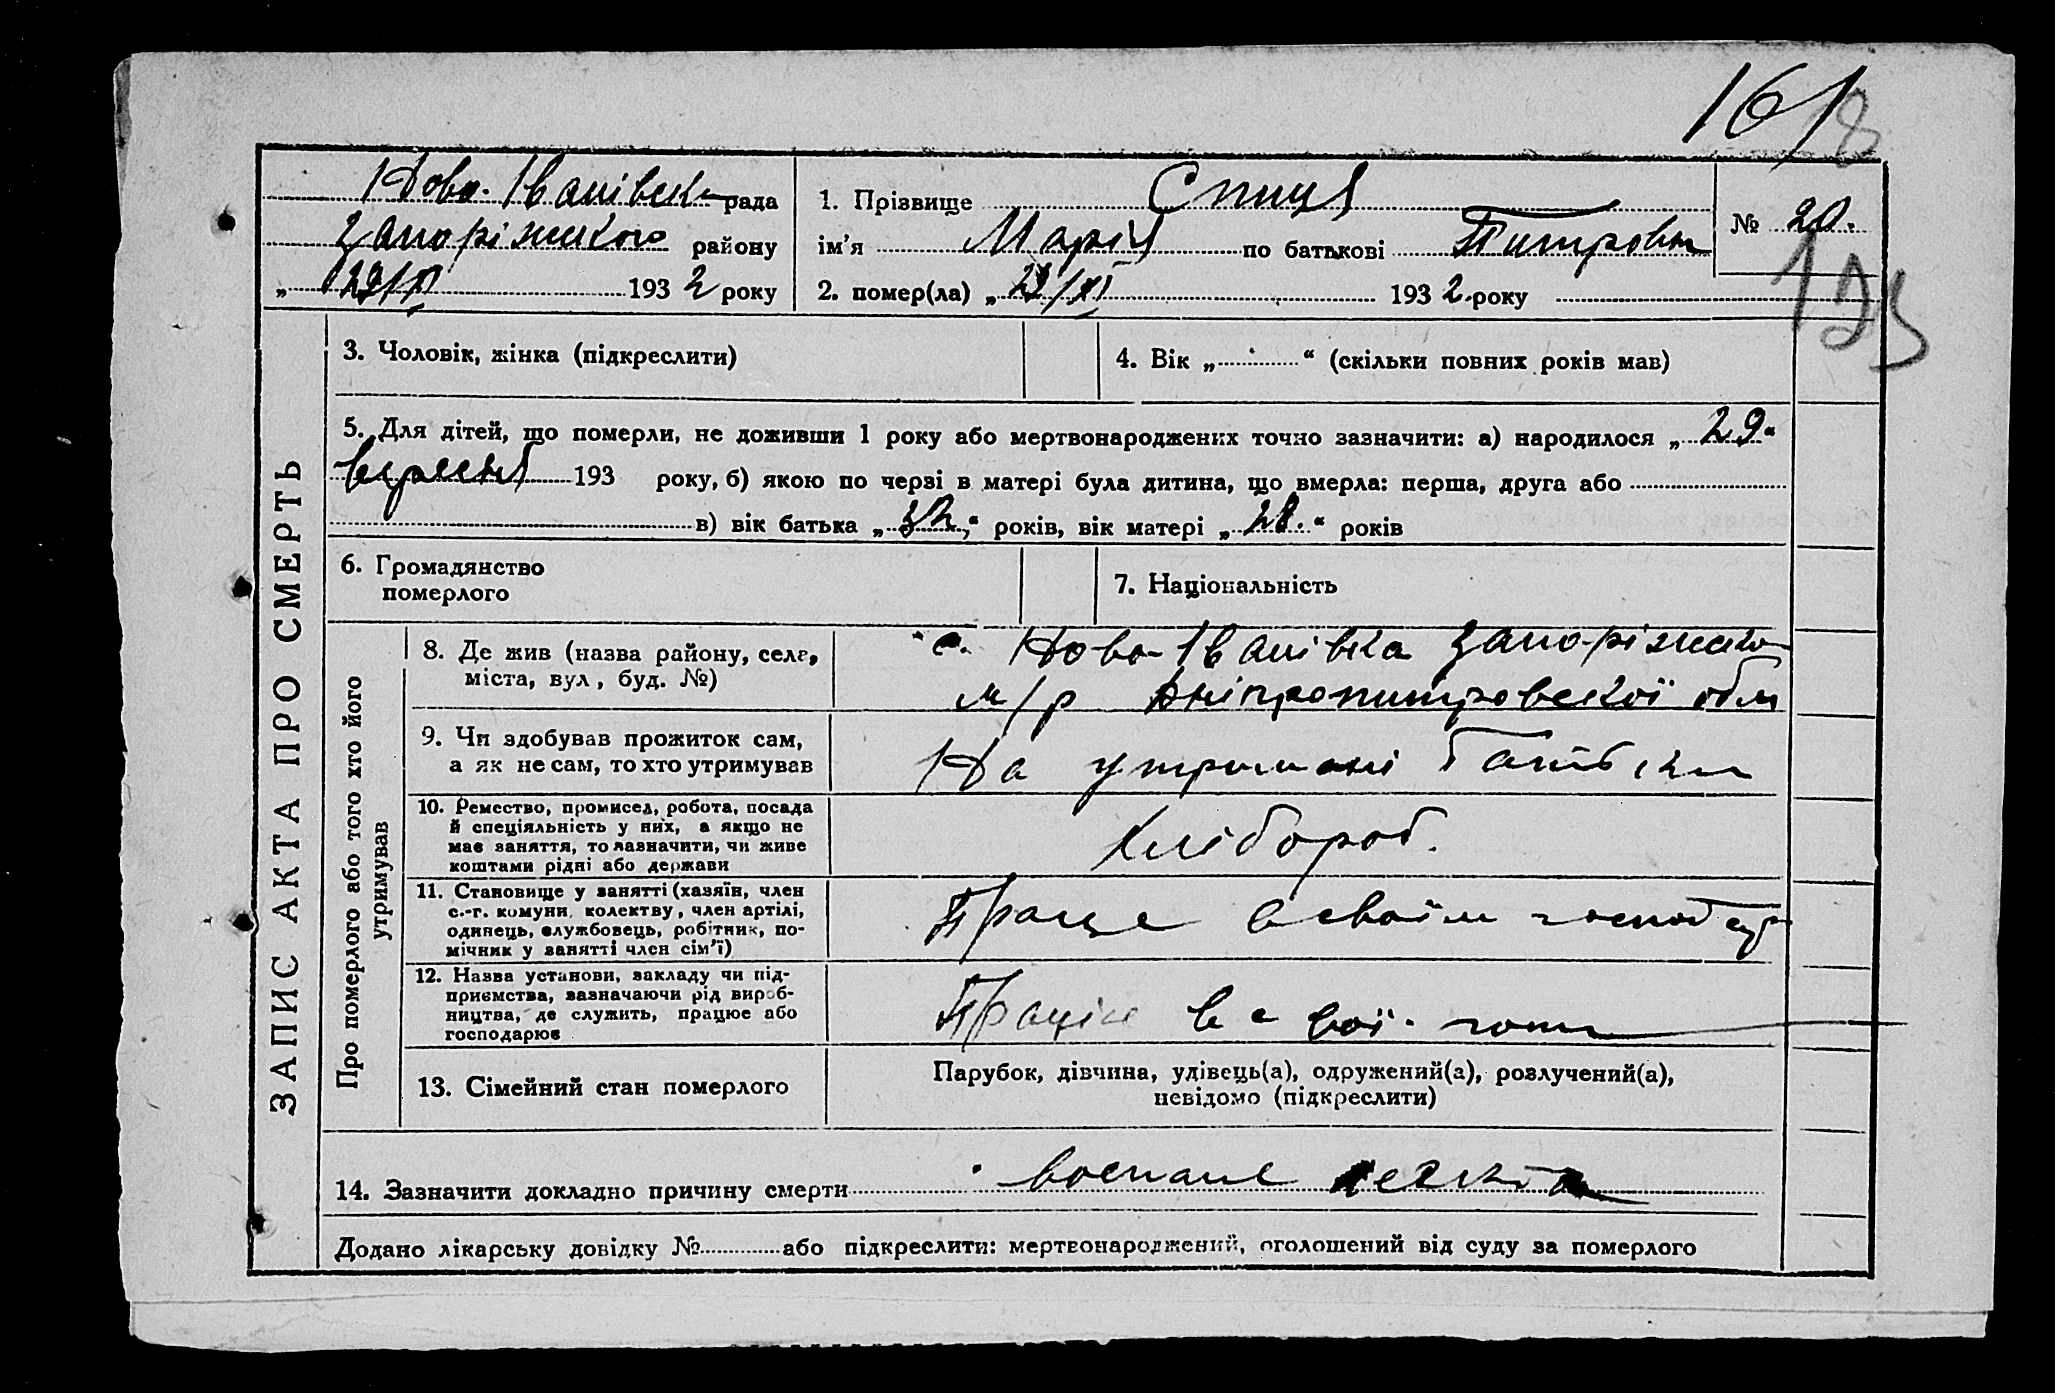 161
Ново-Іванівська рада
Запоріжського району
„ 29/XI 1932 року
1. Прізвище Спиця
ім’я Марія по батькові Питровна
2. помер(ла) „ /XI 1932 року
№ 20.
ЗАПИС АКТА ПРО СМЕРТЬ
3. Чоловік, жінка (підкреслити)
4. Вік „ “ (скільки повних років мав)
5. Для дітей, що померли, не доживши 1 року або мертвонароджених точно зазначити: а) народилося „ 29 “
вересня 193 року, б) якою по черзі в матері була дитина, що вмерла: перша, друга або
в) вік батька „ 32 “ років, вік матері „ 28. “ років
6. Громадянство
померлого
7. Національність
Про померлого або того хто його
утримував
8. Де жив (назва району, села,
міста, вул, буд. №)
с. Ново-Іванівка Запоріжсько
м/р Дніпропитровської обл
9. Чи здобував прожиток сам,
а як не сам, то хто утримував
На утримані батьк
10. Ремество, промисел, робота, посада
й спеціяльність у них, а якщо не
має заняття, то зазначити, чи живе
коштами рідні або держави
Хлібороб.
11. Становище у занятті (хазяїн, член
с.-г. комуни, колектву, член артілі,
одинець, службовець, робітник, по-
мічник у занятті член сім’ї)
Праце в своїм господ
12. Назва установи, закладу чи під-
приємства, зазначаючи рід вироб-
ництва, де служить, працює або
господарює
в свої
13. Сімейний стан померлого
Парубок, дівчина, удівець(а), одружений(а), розлучений(а),
невідомо (підкреслити)
14. Зазначити докладно причину смерти воспале
Додано лікарську довідку № або підкреслити: мертвонароджений, оголошений від суду за померлого